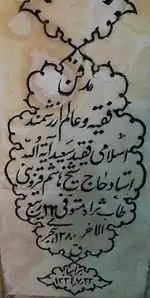 مدفن
فقیه و عالم ارزشمند
اسلامی فقید سعید آیة الله
استاد حاج شیخ هاشم قزوینی
طاب ثراه متوفی ۲۲ ربیع
الاخر ۱۳۸۰ هجری
ق
برابر با
۱۳۳۹/۷/۲۲